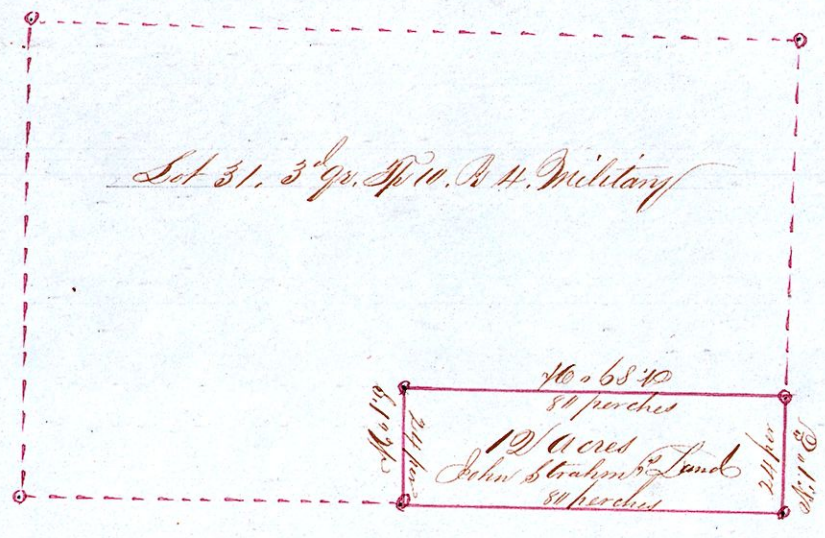 Lot 31. 3d qr. Tp 10. R 4. Military
80 perches
24 per
24 per
12 acres
John Strahm's Land
80 perches